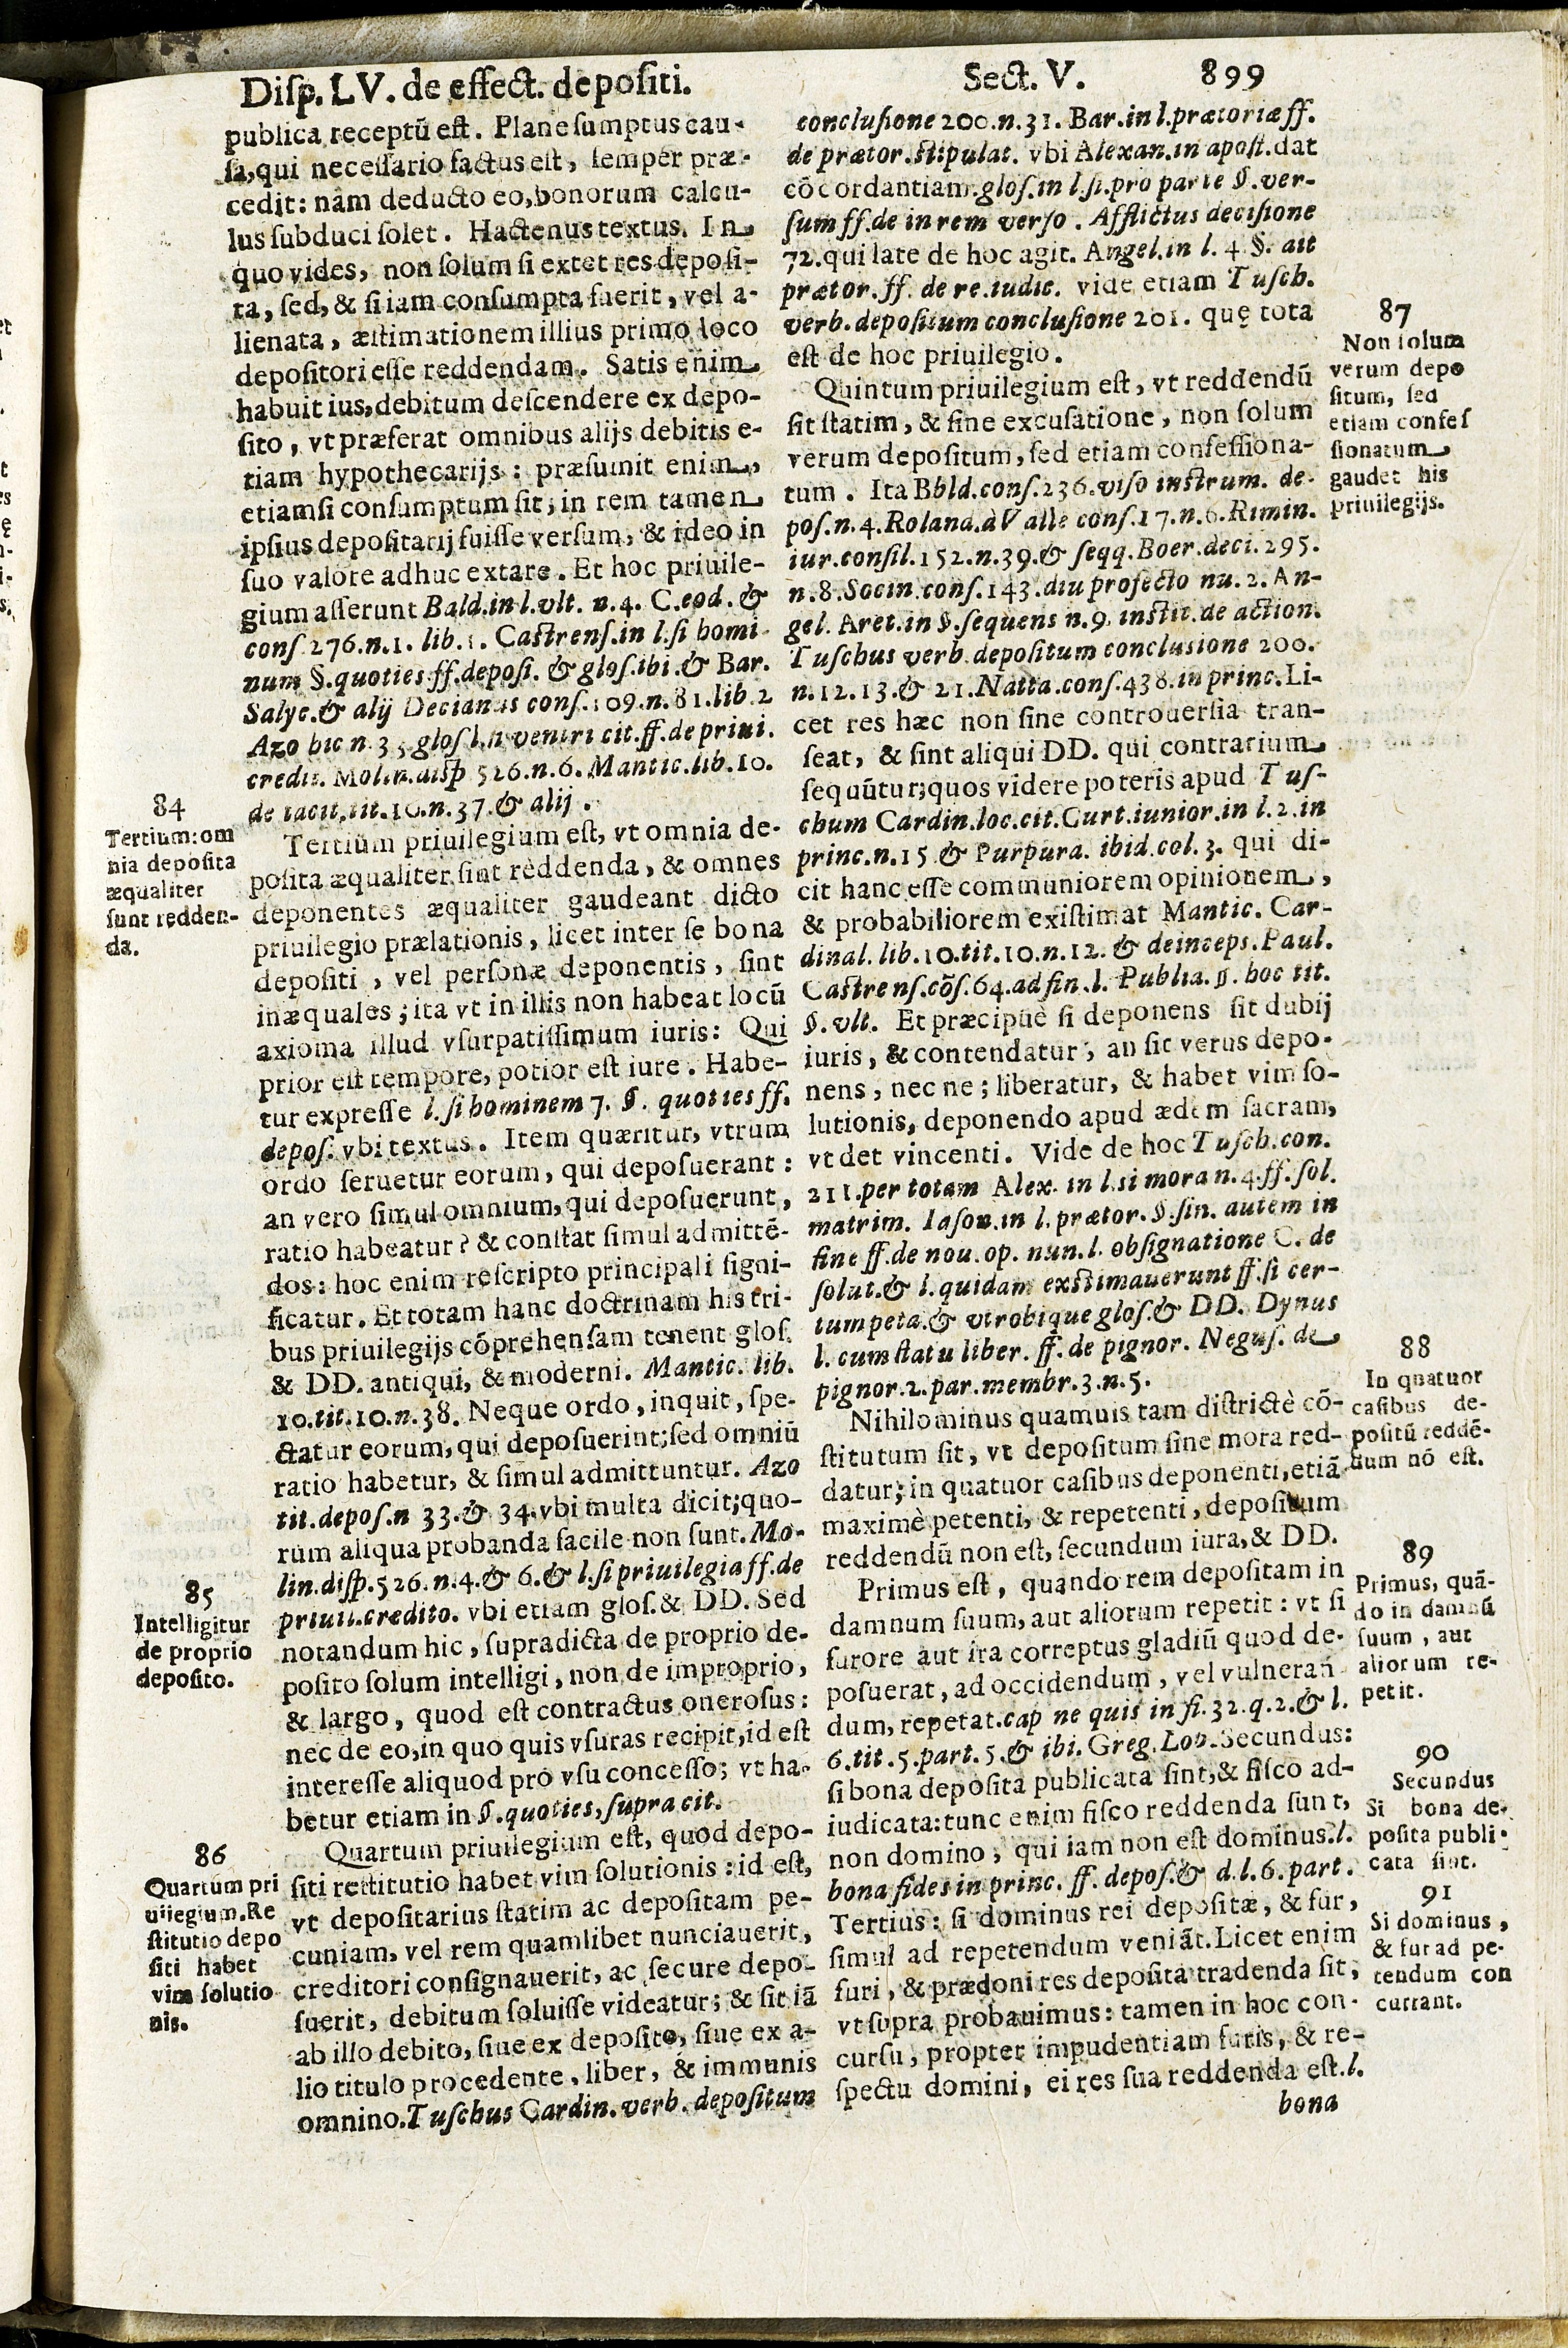 Disp. LV. de effect. depositi.
Sect. V. 899
publica receptū est. Plane sumptus cau-
sa, qui necessario factus est, semper præ-
cedit: nam deducto eo, bonorum calcu-
lus subduci solet. Hactenus textus. In
quo vides, non solum si extet res deposi-
ta, sed, & si iam consumpta fuerit, vel a-
lienata, æstimationem illius primo loco
depositori esse reddendam. Satis enim
habuit ius, debitum descendere ex depo-
sito, vt præferat omnibus alijs debitis e-
tiam hypothecarijs: præsumit enim,
etiamsi consumptum sit, in rem tamen
ipsius depositarij fuisse versum, & ideo in
suo valore adhuc extare. Et hoc priuile-
gium asserunt Bald. in l. vlt. n. 4. C. eod. &
cons. 276. n. 1. lib. 1. Castrens. in l. si homi-
num §. quoties ff. deposi. & glos. ibi. & Bar.
Salyc. & alij Decianus cons. 109. n. 81. lib. 2
Azo hic n. 35 glos l. si ventri cit. ff. de priui.
credit. Molin. disp 526. n. 6. Mantic. lib. 10.
de tacit. tit. 10. n. 37. & alij.
84
Tertium: om
nia deposita
æqualiter
sunt redden-
da.
Tertium priuilegium est, vt omnia de-
posita æqualiter sint reddenda, & omnes
deponentes æqualiter gaudeant dicto
priuilegio prælationis, licet inter se bona
depositi, vel personæ deponentis, sint
inæquales; ita vt in illis non habeat locū
axioma illud vsurpatissimum iuris: Qui
prior est tempore, potior est iure. Habe-
tur expresse l. si hominem 7. §. quoties ff.
depos. vbi textus. Item quæritur, vtrum
ordo seruetur eorum, qui deposuerant:
an vero simul omnium, qui deposuerunt,
ratio habeatur? & constat simul admittē-
dos: hoc enim rescripto principali signi-
ficatur. Et totam hanc doctrinam his tri-
bus priuilegijs cōprehensam tenent glos.
& DD. antiqui, & moderni. Mantic. lib.
10. tit. 10. n. 38. Neque ordo, inquit, spe-
ctatur eorum, qui deposuerint; sed omniū
ratio habetur, & simul admittuntur. Azo
tit. depos. n 33. & 34. vbi multa dicit; quo-
rum aliqua probanda facile non sunt. Mo-
lin. disp. 526. n. 4. & 6. & l. si priuilegia ff. de
priuil. credito. vbi etiam glos. & DD. Sed
85
Intelligitur
de proprio
deposito.
notandum hic, supradicta de proprio de-
posito solum intelligi, non de improprio,
& largo, quod est contractus onerosus:
nec de eo, in quo quis vsuras recipit, id est
interesse aliquod pro vsu concesso; vt ha-
betur etiam in §. quoties, supra cit.
86
Quartum pri
uilegium. Re
stitutio depo
siti habet
vim solutio
nis.
Quartum priuilegium est, quod depo-
siti restitutio habet vim solutionis: id est,
vt depositarius statim ac depositam pe-
cuniam, vel rem quamlibet nunciauerit,
creditori consignauerit, ac secure depo-
suerit, debitum soluisse videatur; & sit iā
ab illo debito, siue ex deposito, siue ex a-
lio titulo procedente, liber, & immunis
omnino. Tuschus Cardin. verb. depositum
conclusione 200. n. 31. Bar. in l. prætoriæ ff.
de prætor. stipulat. vbi Alexan. in apost. dat
cōcordantiam. glos. in l. si. pro parte §. ver-
sum ff. de in rem verso. Afflictus decisione
72. qui late de hoc agit. Angel. in l. 4. §. ait
prætor. ff. de re. iudic. vide etiam Tusch.
verb. depositum conclusione 201. quę tota
est de hoc priuilegio.
87
Non solum
verum depo
situm, sed
etiam confes
sionatum
gaudet his
priuilegijs.
Quintum priuilegium est, vt reddendū
sit statim, & sine excusatione, non solum
verum depositum, sed etiam confessiona-
tum. Ita Bbld. cons. 236. viso instrum. de-
pos. n. 4. Roland. à Valle cons. 17. n. 6. Rimin.
iur. consil. 152. n. 39. & seqq. Boer. deci. 295.
n. 8. Socin. cons. 143. diu profecto nu. 2. An-
gel. Aret. in §. sequens n. 9. instit. de action.
Tuschus verb. depositum conclusione 200.
n. 12. 13. & 21. Natta. cons. 438. in princ. Li-
cet res hæc non sine controuersia tran-
seat, & sint aliqui DD. qui contrarium
sequūtur; quos videre poteris apud Tus-
chum Cardin. loc. cit. Curt. iunior. in l. 2. in
princ. n. 15 & Purpura. ibid. col. 3. qui di-
cit hanc esse communiorem opinionem,
& probabiliorem existimat Mantic. Car-
dinal. lib. 10. tit. 10. n. 12. & deinceps. Paul.
Castrens. cōs. 64. ad fin. l. Publia. §. hoc tit.
§. vlt. Et præcipuè si deponens sit dubij
iuris, & contendatur, an sit verus depo-
nens, nec ne; liberatur, & habet vim so-
lutionis, deponendo apud ædem sacram,
vt det vincenti. Vide de hoc Tusch. con.
211. per totam Alex. in l. si mora n. 4. ff. sol.
matrim. Iason. in l. prætor. §. sin. autem in
fine ff. de nou. op. nun. l. obsignatione C. de
solut. & l. quidam exstimauerunt ff. si cer-
tum peta. & vtrobique glos. & DD. Dynus
l. cum statu liber. ff. de pignor. Negus. de
pignor. 2. par. membr. 3. n. 5.
88
In quatuor
casibus de-
positū reddē-
dum nō est.
Nihilominus quamuis tam districtè cō-
stitutum sit, vt depositum sine mora red-
datur; in quatuor casibus deponenti, etiā
maximè petenti, & repetenti, depositum
reddendū non est, secundum iura, & DD.
89
Primus, quā-
do in damnū
suum, aut
aliorum re-
petit.
Primus est, quando rem depositam in
damnum suum, aut aliorum repetit: vt si
furore aut ira correptus gladiū quod de-
posuerat, ad occidendum, vel vulneran
dum, repetat. cap ne quis in fi. 32. q. 2. & l.
6. tit. 5. part. 5. & ibi. Greg. Lop. Secundus:
90
Secundus
Si bona de-
posita publi-
cata sint.
si bona deposita publicata sint, & fisco ad-
iudicata: tunc enim fisco reddenda sunt,
non domino, qui iam non est dominus. l.
bona fides in princ. ff. depos. & d. l. 6. part.
91
Si dominus,
& fur ad pe-
tendum con
currant.
Tertius: si dominus rei depositæ, & fur,
simul ad repetendum veniāt. Licet enim
furi, & prædoni res deposita tradenda sit,
vt supra probauimus: tamen in hoc con-
cursu, propter impudentiam furis, & re-
spectu domini, ei res sua reddenda est. l.
bona